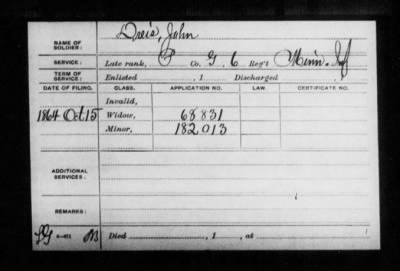 NAME OF SOLDIER: Dreis, John
SERVICE: Late rank, P Co. G, 6 Reg't Minn. Inf
TERM OF SERVICE: Enlisted , 1 Discharged , 1
DATE OF FILING. CLASS. APPLICATION NO. LAW. CERTIFICATE NO.
Invalid,
1864 Oct 15 Widow, 68831
Minor, 182013
ADDITIONAL SERVICES:
REMARKS:
Died , 1 , at